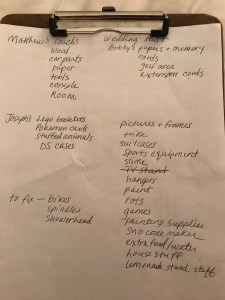 Matthew's tools
wood
car parts
paper
tools
console
ROOM
Wedding stuff
Bobby's papers + memory
cards
gas area
extension cords
Joseph's Lego booklets
Pokemon cards
stuffed animals
DS cases
to fix — bikes
spindles
showerhead
pictures + frames
trike
suitcases
sports equipment
slime
TV stand
hangers
paint
pots
games
painting supplies
sno cone maker
extra food/water
house stuff
lemonade stand stuff